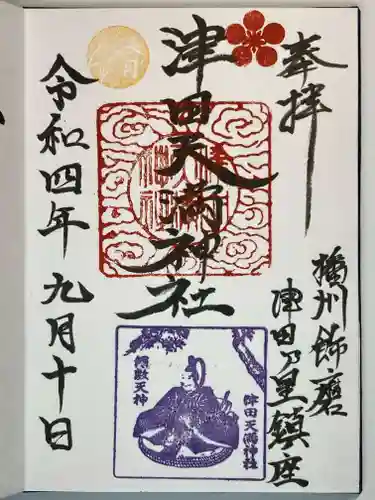 奉拝
播州飾磨
津田乃里鎮座
津田天満神社
津田天満神社
令和四年九月十日